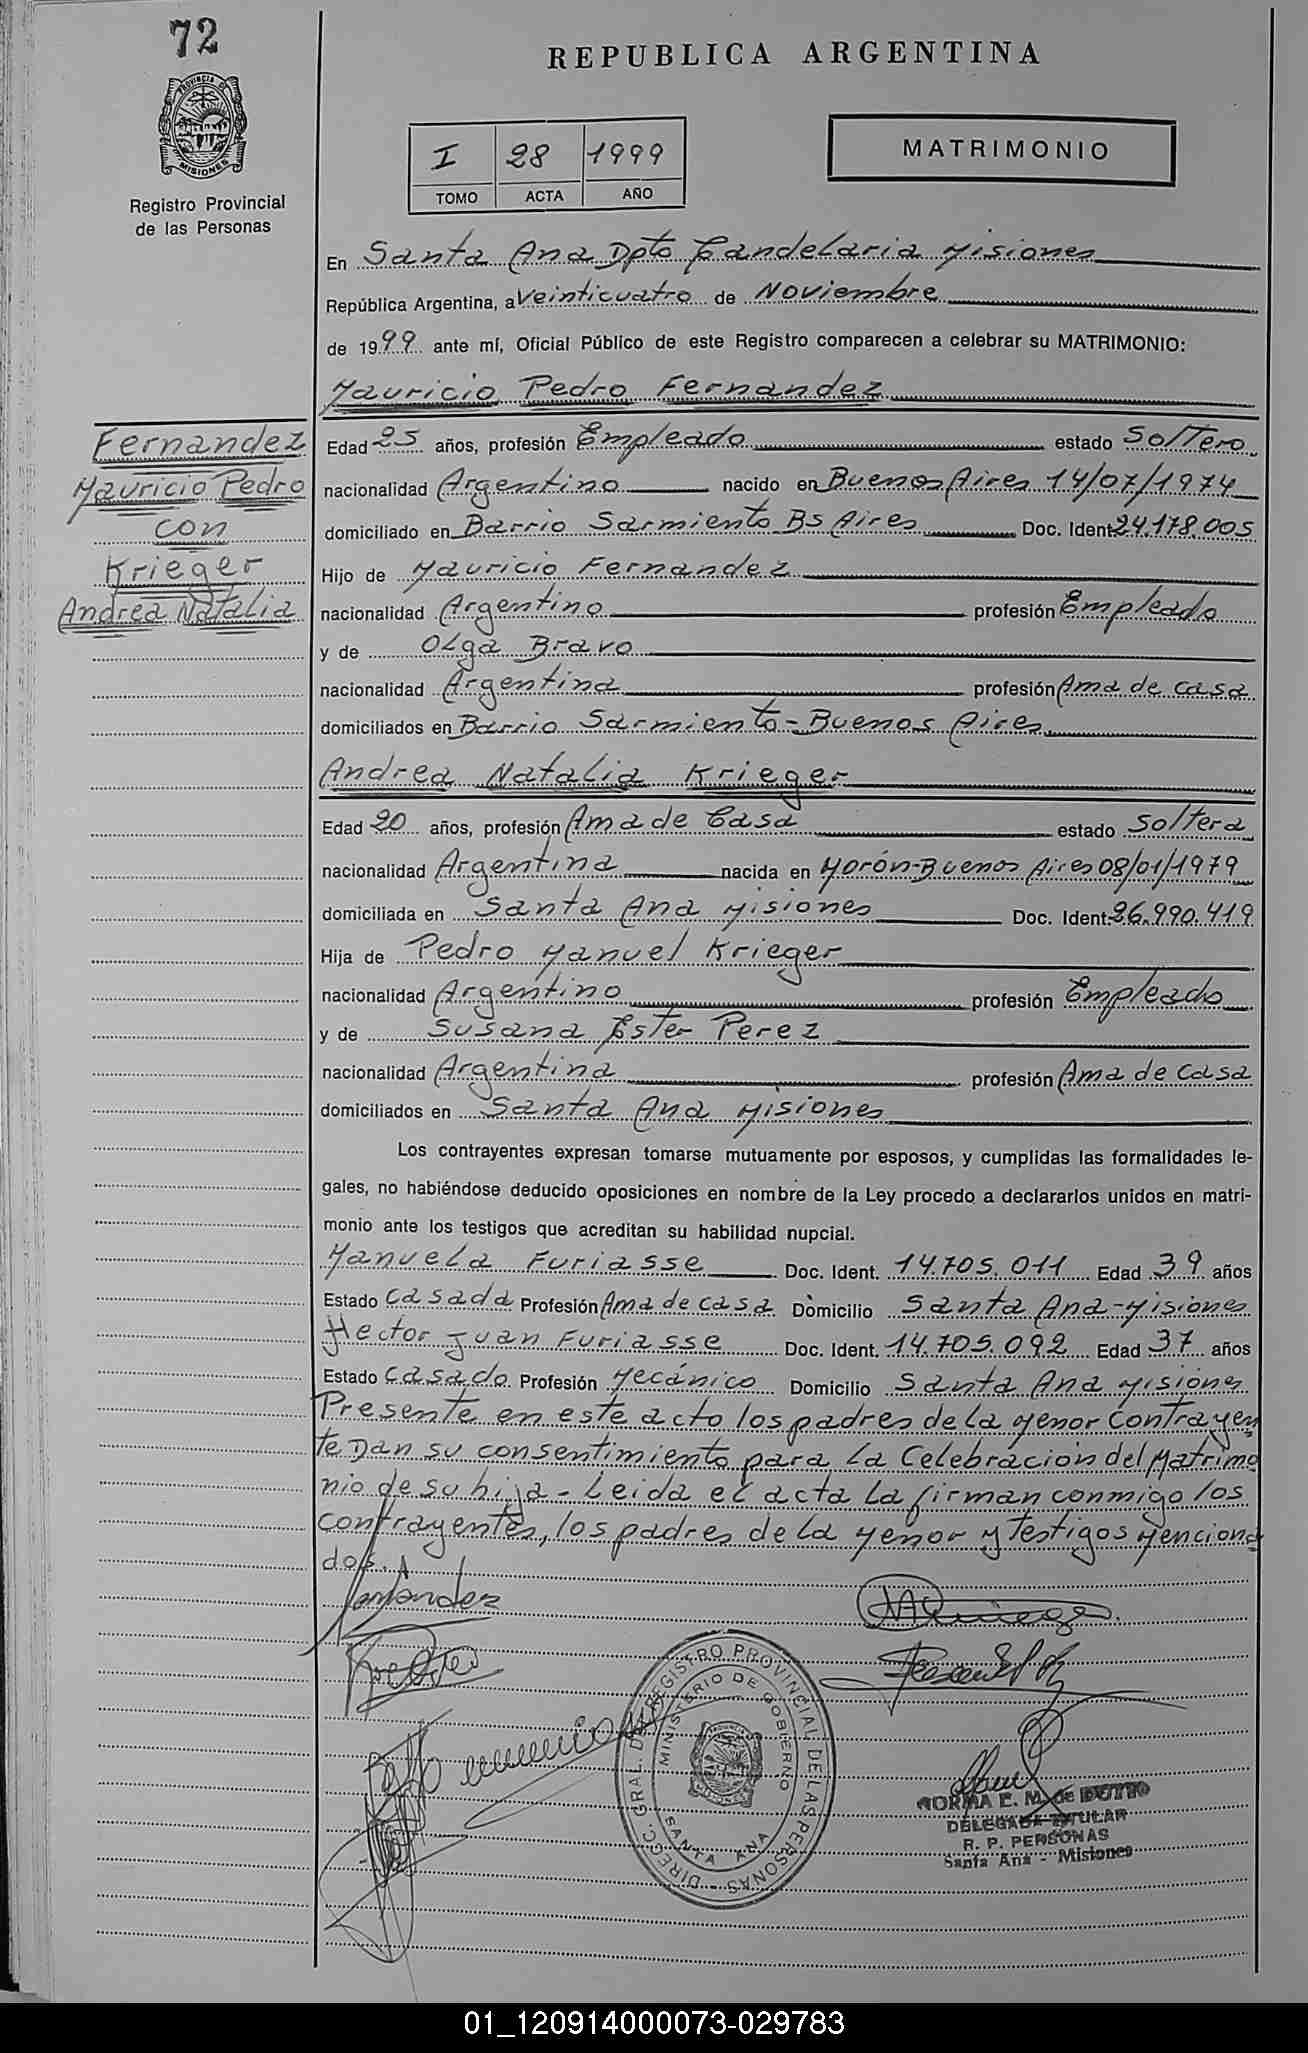 72
REPUBLICA ARGENTINA
PROVINCIA DE
MISIONES
Registro Provincial
de las Personas
I 28 1999
TOMO ACTA AÑO
MATRIMONIO
En Santa Ana Dpto Candelaria Misiones
República Argentina, a Veinticuatro de Noviembre
de 1999 ante mí, Oficial Público de este Registro comparecen a celebrar su MATRIMONIO:
Mauricio Pedro Fernandez
Fernandez
Mauricio Pedro
con
Krieger
Andrea Natalia
Edad 25 años, profesión Empleado estado Soltero
nacionalidad Argentino nacido en Buenos Aires 14/07/1974
domiciliado en Barrio Sarmiento Bs Aires Doc. Ident. 24.178.005
Hijo de Mauricio Fernandez
nacionalidad Argentino profesión Empleado
y de Olga Bravo
nacionalidad Argentina profesión Ama de casa
domiciliados en Barrio Sarmiento - Buenos Aires
Andrea Natalia Krieger
Edad 20 años, profesión Ama de Casa estado Soltera
nacionalidad Argentina nacida en Morón-Buenos Aires 08/01/1979
domiciliada en Santa Ana Misiones Doc. Ident. 26.990.419
Hija de Pedro Manuel Krieger
nacionalidad Argentino profesión Empleado
y de Susana Ester Perez
nacionalidad Argentina profesión Ama de casa
domiciliados en Santa Ana Misiones
Los contrayentes expresan tomarse mutuamente por esposos, y cumplidas las formalidades le-
gales, no habiéndose deducido oposiciones en nombre de la Ley procedo a declararlos unidos en matri-
monio ante los testigos que acreditan su habilidad nupcial.
Manuela Furiasse Doc. Ident. 14.705.011 Edad 39 años
Estado Casada Profesión Ama de casa Domicilio Santa Ana-Misiones
Hector Juan Furiasse Doc. Ident. 14.705.092 Edad 37 años
Estado Casado Profesión Mecánico Domicilio Santa Ana Misiones
Presente en este acto los padres de la menor Contrayen
te Dan su consentimiento para la Celebración del Matrimo
nio de su hija - Leida el acta la firman conmigo los
contrayentes, los padres de la menor y Testigos menciona
dos.
Fernandez
DIRECC. GRAL. DE REGISTRO PROVINCIAL DE LAS PERSONAS -
MINISTERIO DE GOBIERNO
SANTA ANA
NORMA E. M. de DUTTO
DELEGADA TITULAR
R. P. PERSONAS
Santa Ana - Misiones
01_120914000073-029783